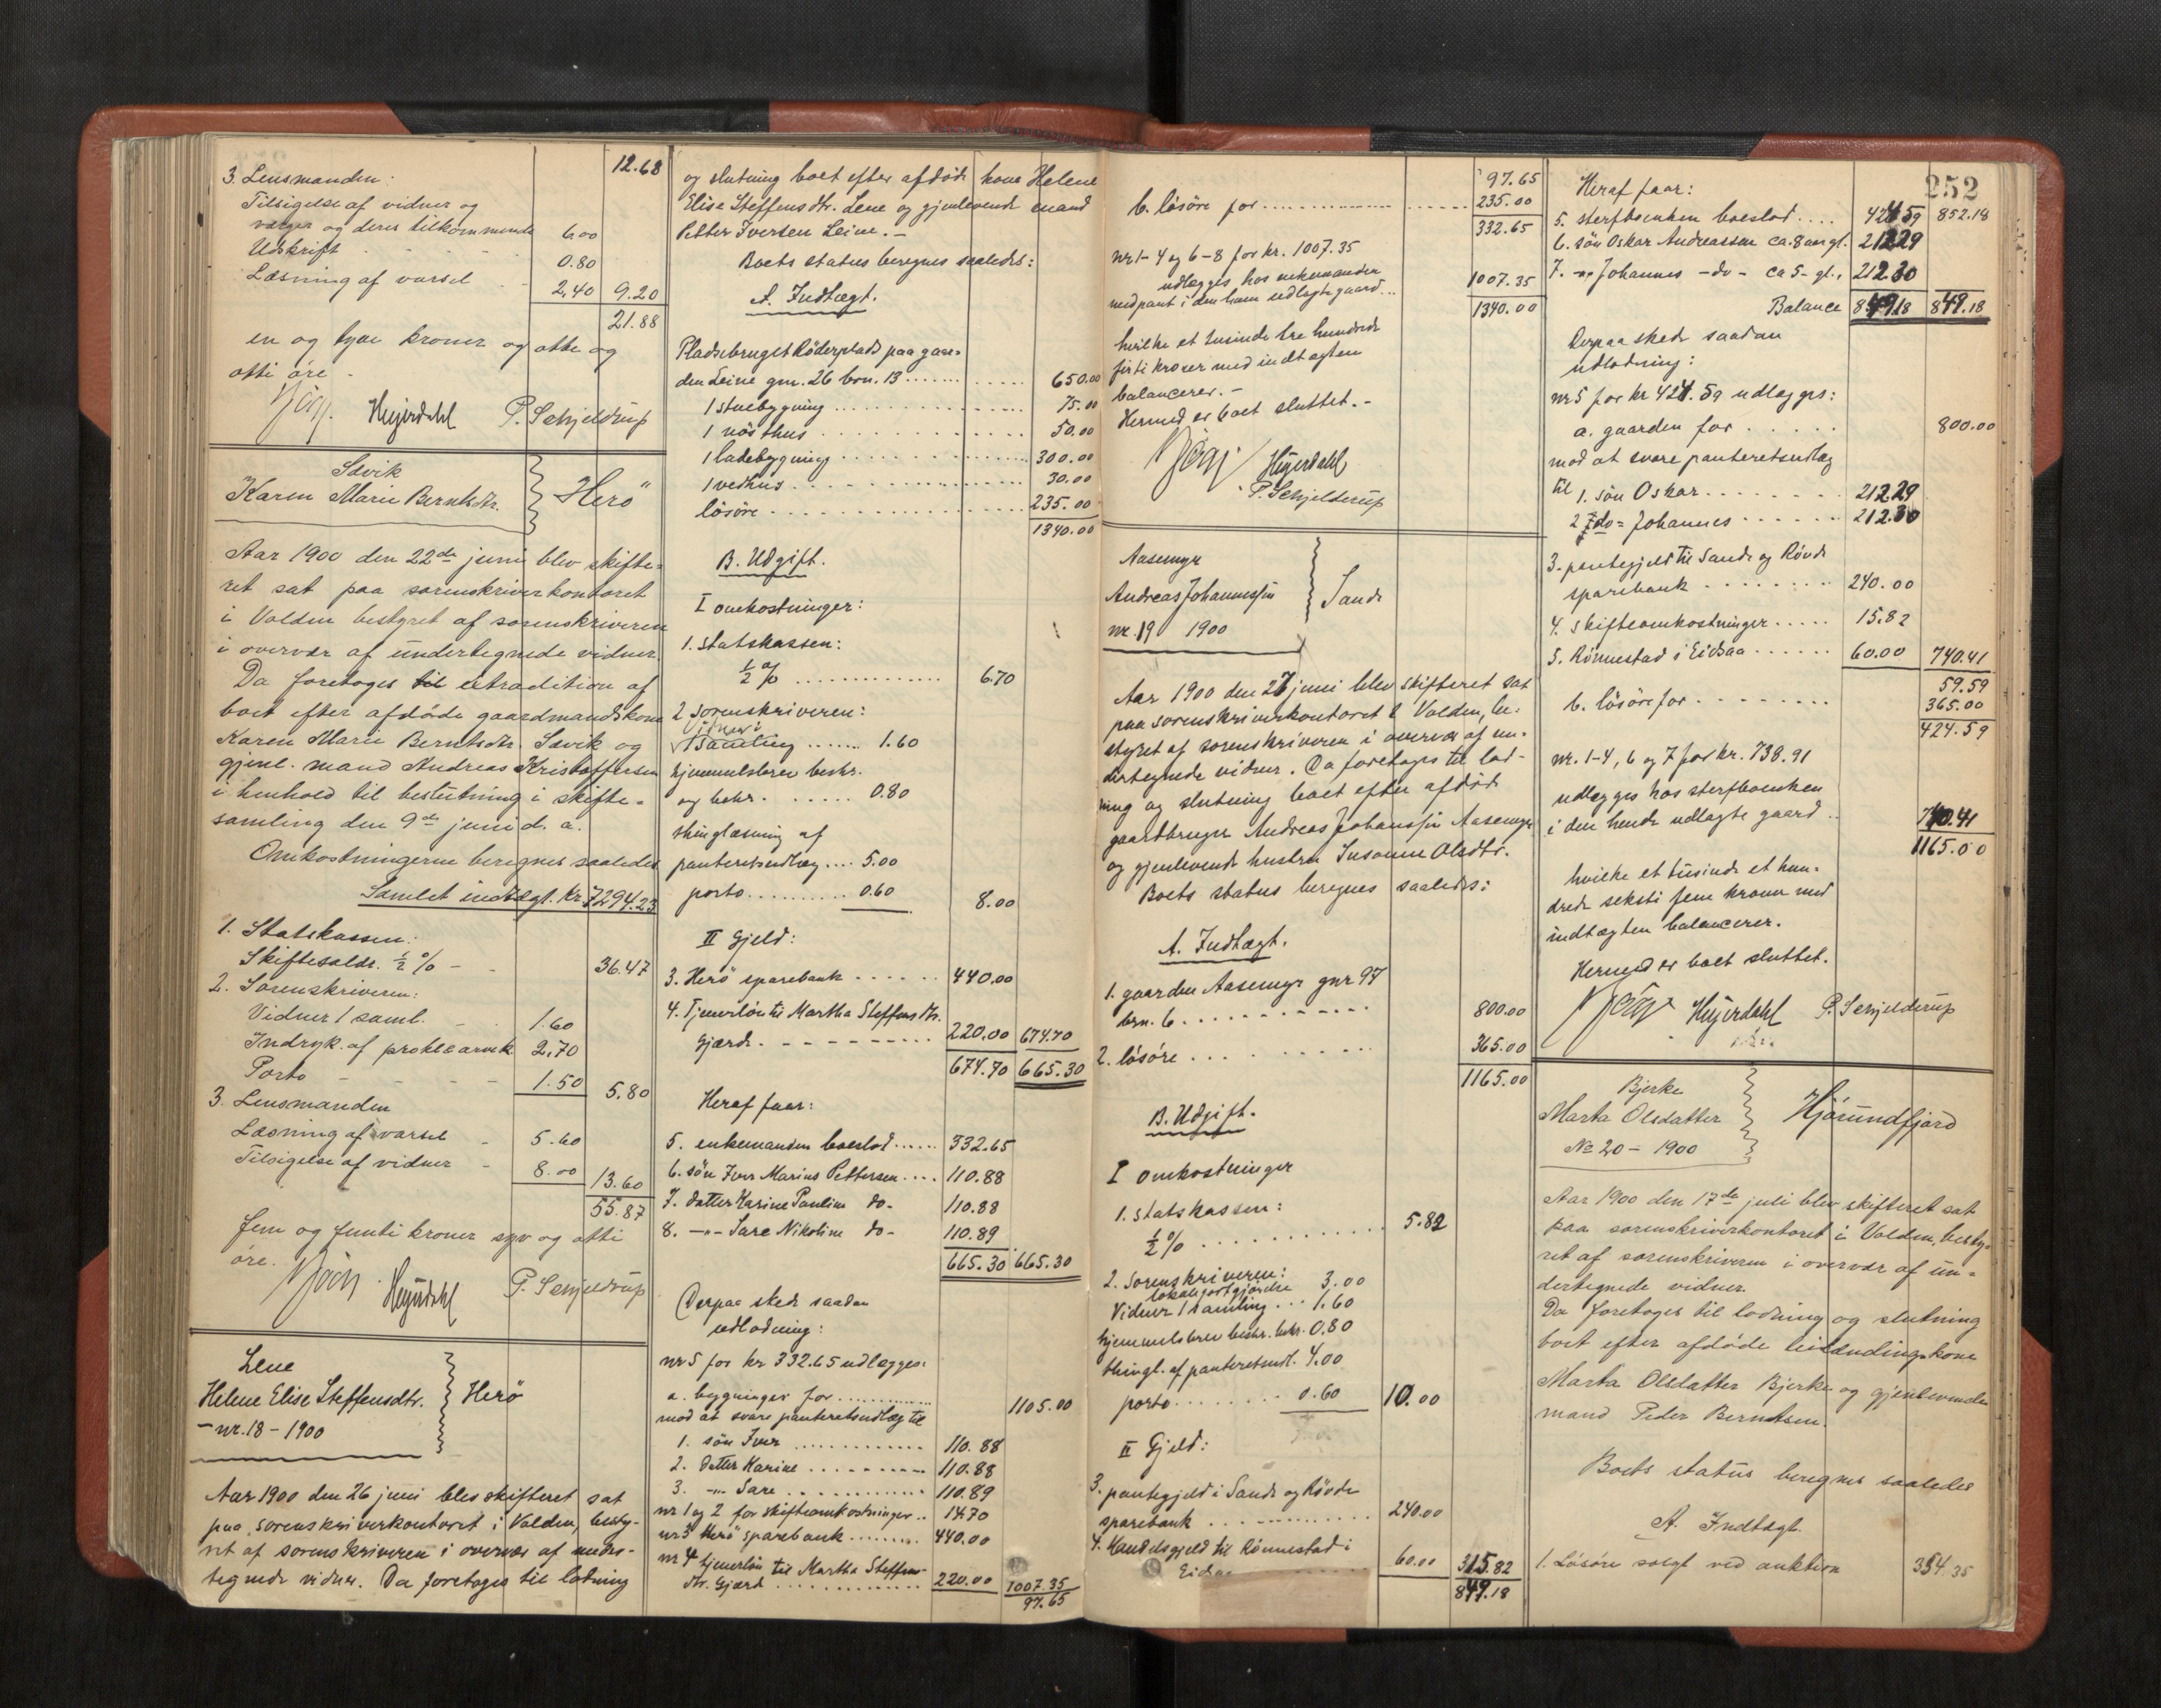 12.68
3. Lensmanden:
Tilsigelse af vidner og
værger og deres tilkommende 6.00
Udskrift 0.80
Læsning af varsel 2,40 9.20
21.88
en og tyve kroner og otte og
otti øre -
Heyerdahl P. Schjeldrup
Sævik
Karen Marie Berntsdtr. Herö
Aar 1900 den 22de juni blev skifte-
ret sat paa sorenskriverkontoret
i Volden bestyret af sorenskriveren
i overvær af undertegnede vidner.
Da foretoges til extradition af
boet efter afdöde gaardmandskone
Karen Marie Berntsdtr. Sævik og
gjenl. mand Andreas Kristoffersen
i henhold til beslutning i skifte-
samling den 9de juni d. a.
Omkostningerne beregnes saaledes
Samlet indtægt. Kr. 7294.23
1. Statskassen:
Skiftesaldr. ½ % - - 36.47
2. Sorenskriveren:
Vidner 1 saml. - 1.60
Indryk. af proklama 2,70
Porto - - - - 1.50 5.80
3. Lensmanden
Læsning af varsel - 5.60
Tilsigelse af vidner - 8.00 13.60
55.87
fem og femti kroner syv og otti
öre.
Heyerdahl P. Schjeldrup
Leine
Helene Elise Steffensdtr. Herö
- nr. 18 - 1900
Aar 1900 den 26 juni blev skifteret sat
paa sorenskriverkontoret i Volden, besty-
ret af sorenskriveren i overvær af under-
tegnede vidner. Da foretoges til lodning
og slutning boet efter afdöde kone Helene
Elise Steffensdtr. Leine og gjenlevende mand
Petter Iversen Leine. -
Boets status beregnes saaledes:
A. Indtægt.
Pladsebruget Röderplads paa gaar-
den Leine gnr. 26 brn. 13 ....... 650.00
1 stuebygning ....... 75.00
1 nösthus ....... 50.00
1 ladebygning ....... 300.00
1 vedhus ....... 30.00
lösöre ....... 235.00
1340.00
B. Udgift.
I omkostninger:
1. statskassen:
½ % ....... 6.70
2 sorenskriveren:
vidner i
1 samling ....... 1.60
hjemmelsbrev beskr.
og bekr. ...... 0.80
thinglæsning af
panteretsudlæg .... 5.00
porto ......... 0.60 8.00
II Gjeld:
3. Herö sparebank ...... 440.00
4. Tjenerlön til Martha Steffensdtr.
Gjærde ......... 220.00 674.70
674.70 665.30
Heraf faar:
5. enkemanden boeslod ...... 332.65
6. sön Iver Marius Pettersen .... 110.88
7. datter Karine Pauline do- 110.88
8. -"- Sare Nikoline do- 110.89
665.30 665.30
Derpaa skede saadan
udlodning:
nr 5 for kr 332.65 udlægges:
a. bygninger for ......... 1105.00
mod at svare panteretsudlæg til
1. sön Iver ............ 110.88
2. datter Karine ......... 110.88
3. -"- Sare ............ 110.89
nr 1 og 2 for skifteomkostninger .. 14.70
nr 3 Herö sparebank ........ 440.00
nr 4 tjenerlön til Martha Steffens-
dtr. Gjærde .............. 220.00 1007.35
97.65
97.65
b. lösöre for ....... 235.00
332.65
nr 1-4 og 6-8 for kr. 1007.35
udlægges hos enkemanden
med pant i den ham udlagte gaard... 1007.35
1340.00
hvilke et tusinde tre hundrede
firti kroner med indtægten
balancerer. -
Hermed er boet sluttet. -
Heyerdahl
P. Schjelderup
Aasemyr
Andreas Johannessen Sande
nr. 19 1900
Aar 1900 den 27 juni blev skifteret sat
paa sorenskriverkontoret i Volden, be-
styret af sorenskriveren i overvær af un-
dertegnede vidner. Da foretoges til lod-
ning og slutning boet efter afdöde
gaardbruger Andreas Johannessen Aasemyr
og gjenlevende hustru Susanne Olsdtr.
Boets status beregnes saaledes:
A. Indtægt.
1. gaarden Aasemyr gnr 97
brn. 6 ............ 800.00
2. lösöre ............ 365.00
1165.00
B. Udgift.
I omkostninger
1. statskassen:
½ % ............ 5.82
2. sorenskriveren:
lokalgodtgjörelse 3.00
Vidner 1 samling ... 1.60
hjemmelsbrev beskr. bekr. 0.80
thingl. af panteretsudl. 4.00
porto ....... 0.60 10.00
II Gjeld:
3. pantegjeld i Sande og Rövde
sparebank ............ 240.00
4. Handelsgjeld til Rönnestad i
Eidsaa 60.00 315.82
849.18
252
Heraf faar:
5. sterfboenken boeslod .... 424.59 852.18
6. sön Oskar Andreassen ca. 8 aar gl. 212.29
7. -"- Johannes -do- ca 5- gl., 212.30
Balance 849.18 849.18
Derpaa skede saadan
udlodning:
nr 5 for kr 424.59 udlægges:
a. gaarden for ...... 800.00
mod at svare panteretsudlæg
til 1. sön Oskar ........ 212.29
2 do = Johannes ...... 212.30
3. pantegjeld til Sande og Rövde
sparebank ........ 240.00
4. skifteomkostninger ..... 15.82
5. Rönnestad i Eidsaa ...... 60.00 740.41
59.59
b. lösöre for ........ 365.00
424.59
nr. 1-4, 6 og 7 for kr. 738.91
udlægges hos sterfboenken
i den hende udlagte gaard .. 740.41
1165.00
hvilke et tusinde et hun-
drede seksti fem kroner med
indtægten balancerer.
Hermed er boet sluttet.
Heyerdahl P. Schjelderup
Bjerke
Marta Olsdatter Hjörundfjord
No 20 - 1900
Aar 1900 den 17de juli blev skifteret sat
paa sorenskriverkontoret i Volden, besty-
ret af sorenskriveren i overvær af un-
dertegnede vidner.
Da foretoges til lodning og slutning
boet efter afdöde leilændingskone
Marta Olsdatter Bjerke og gjenlevende
mand Peder Berntsen.
Boets status beregnes saaledes
A. Indtægt.
1. Lösöre solgt ved auktion 354.35